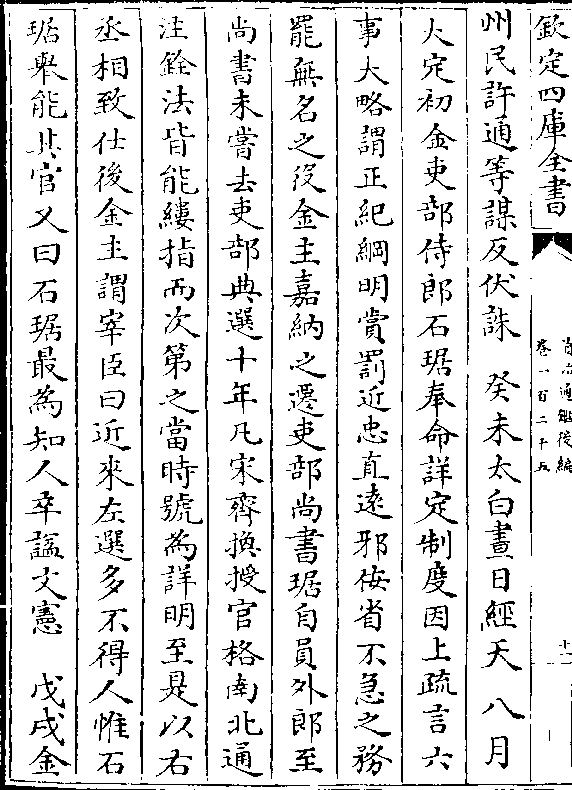 欽定四庫全書
資治通鑑後編
卷一百二十五
十一
州民許通等謀反伏誅　癸未太白晝日經天　八月
大定初金吏部侍郎石琚奉命詳定制度因上疏言六
事大略謂正紀綱明賞罰近忠直遠邪佞省不急之務
罷無名之役金主嘉納之遷吏部尚書琚自員外郎至
尚書未嘗去吏部典選十年凡宋齊換授官格南北通
注銓法皆能縷指而次第之當時號為詳明至是以右
丞相致仕後金主謂宰臣曰近來左選多不得人惟石
琚舉能其官又曰石琚最為知人卒諡文憲　戊戌金